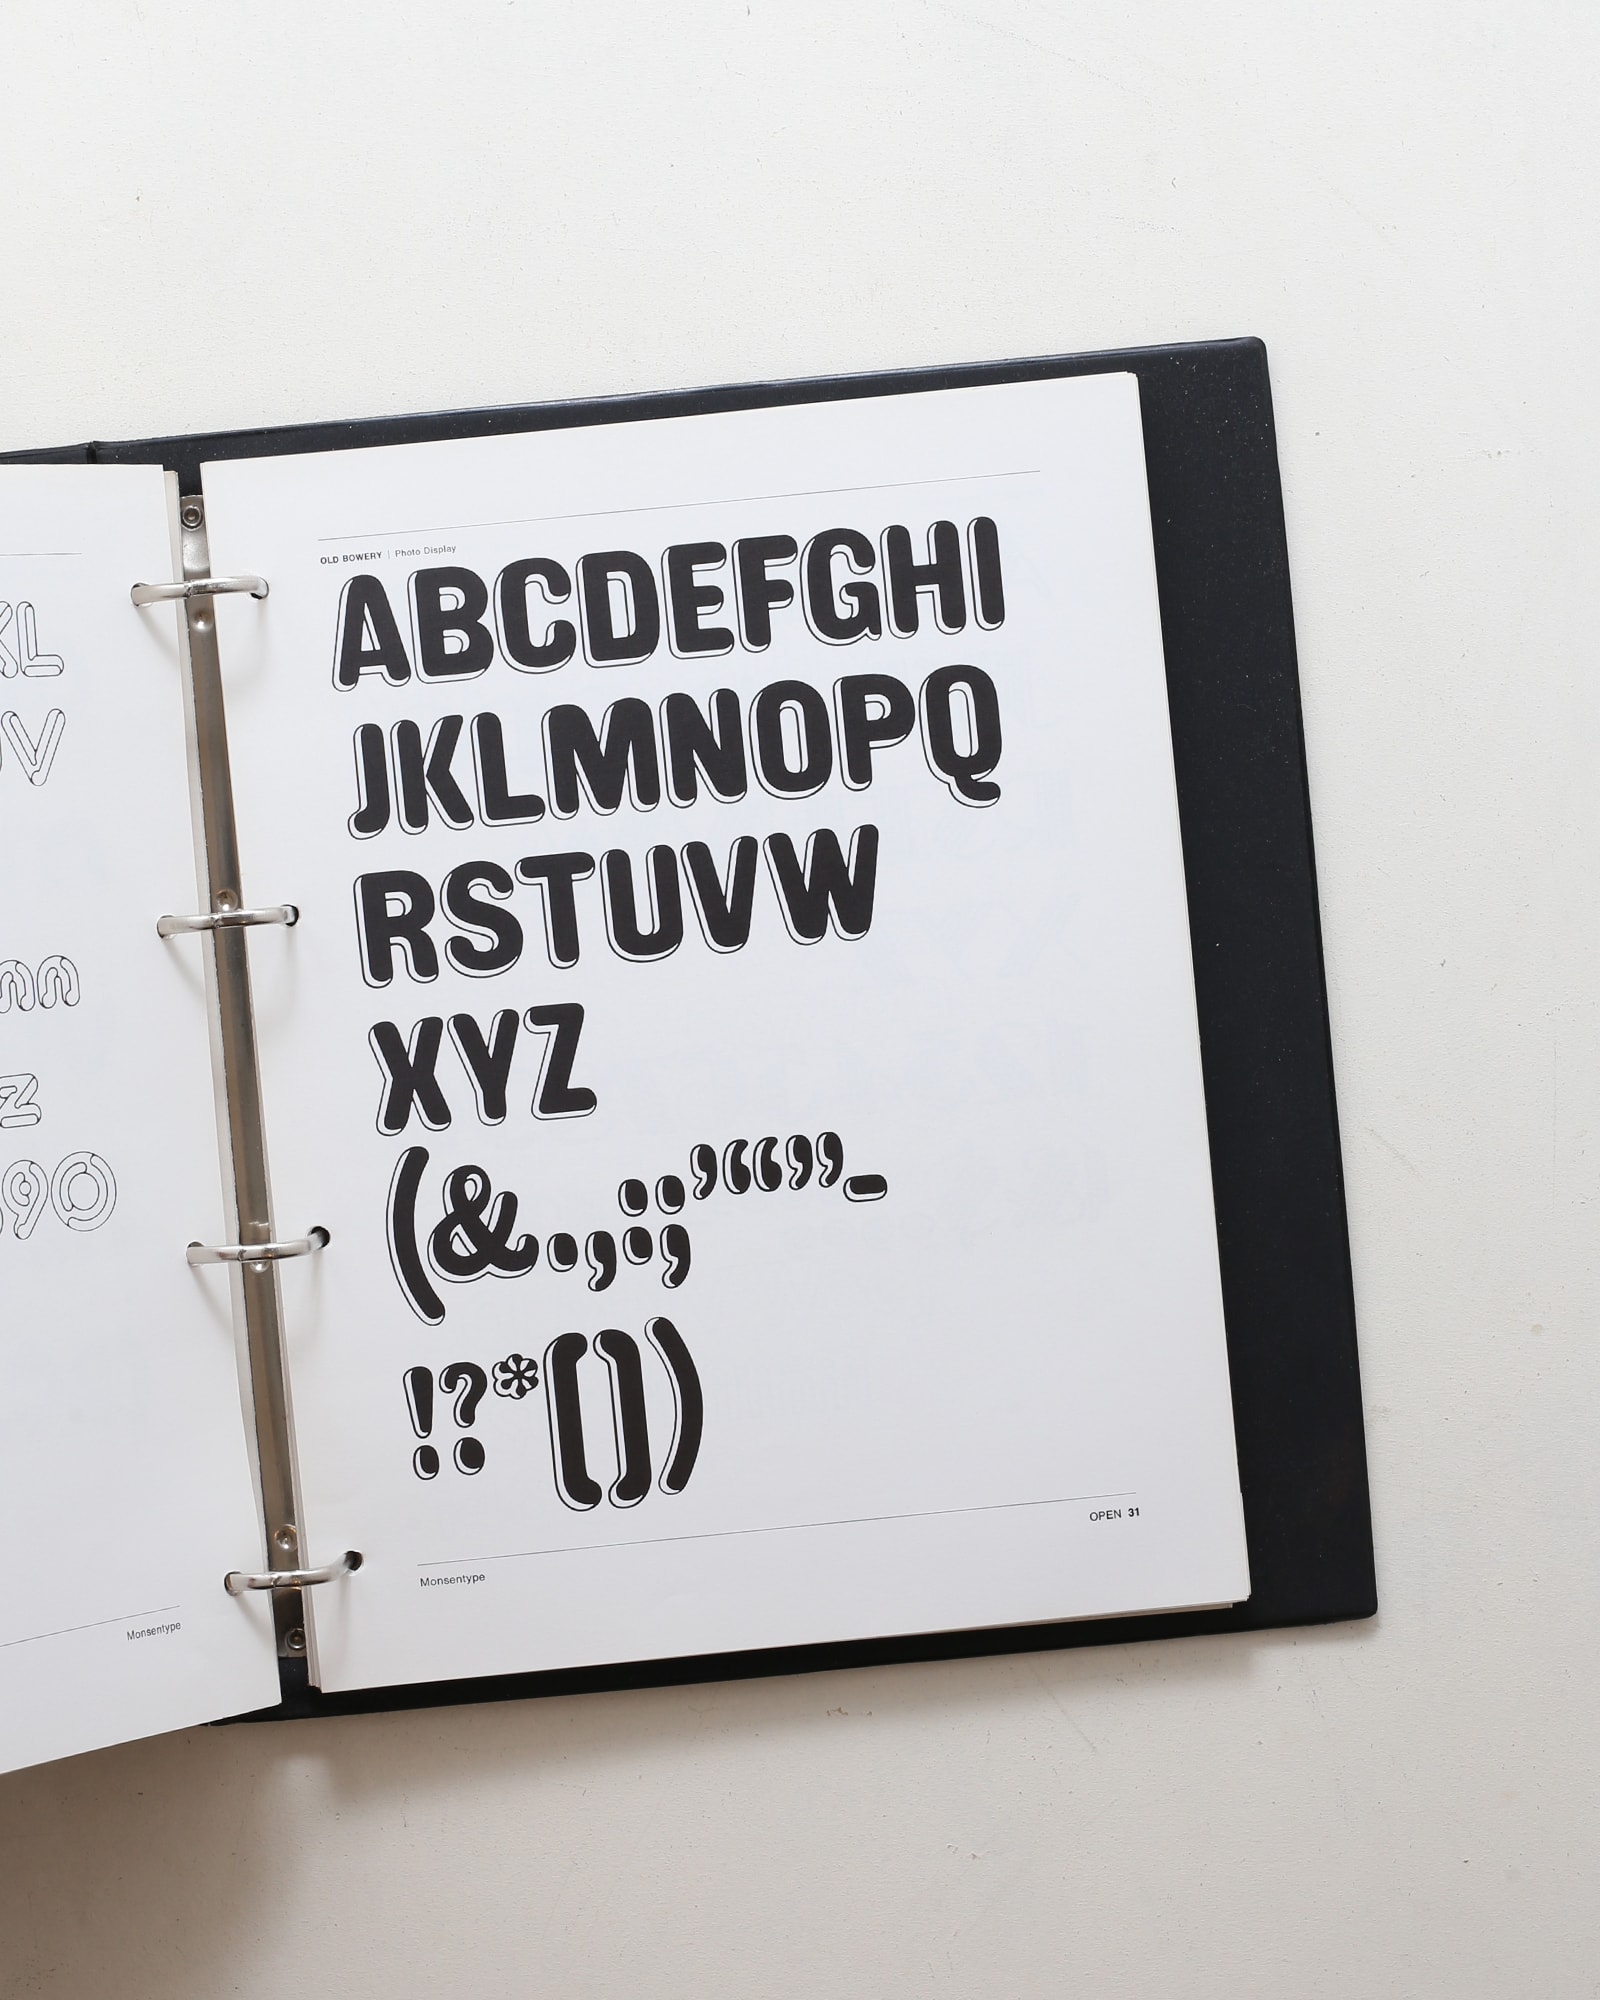 KL
UV
mnn
z
90
Monsentype
OLD BOWERY | Photo Display
ABCDEFGHI
JKLMNOPQ
RSTUVW
XYZ
(&.,:;’“”-
!?*[])
OPEN 31
Monsentype